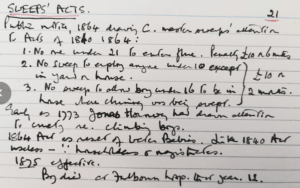 SWEEPS' ACTS.
21
Public notice, 1864 drawing C. master sweeps' attention
to Acts of 1840 1864:
1. No one under 21 to enter flue. Penalty £10 or 6 mths
2. No sweep to employ anyone under 10 except
in yard or house.
£10 or
3. No sweep to allow boy under 16 to be in
2 months.
house where chimney was being swept.
Early as 1773 Jonas Hanway had drawn attention
to cruelty re. climbing boys.
1864 Act as result of Water Babies. Like 1840 Act
useless - householders & magistrates.
1875 effective.
Boy died at Fulbourn Hosp. that year.